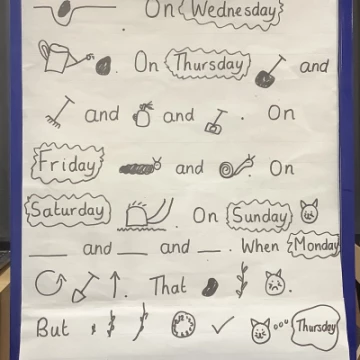 On Wednesday
On Thursday and
and and . On
Friday and On
Saturday . On Sunday
___ and ___ and ___ . When Monday
. That .
But Thursday